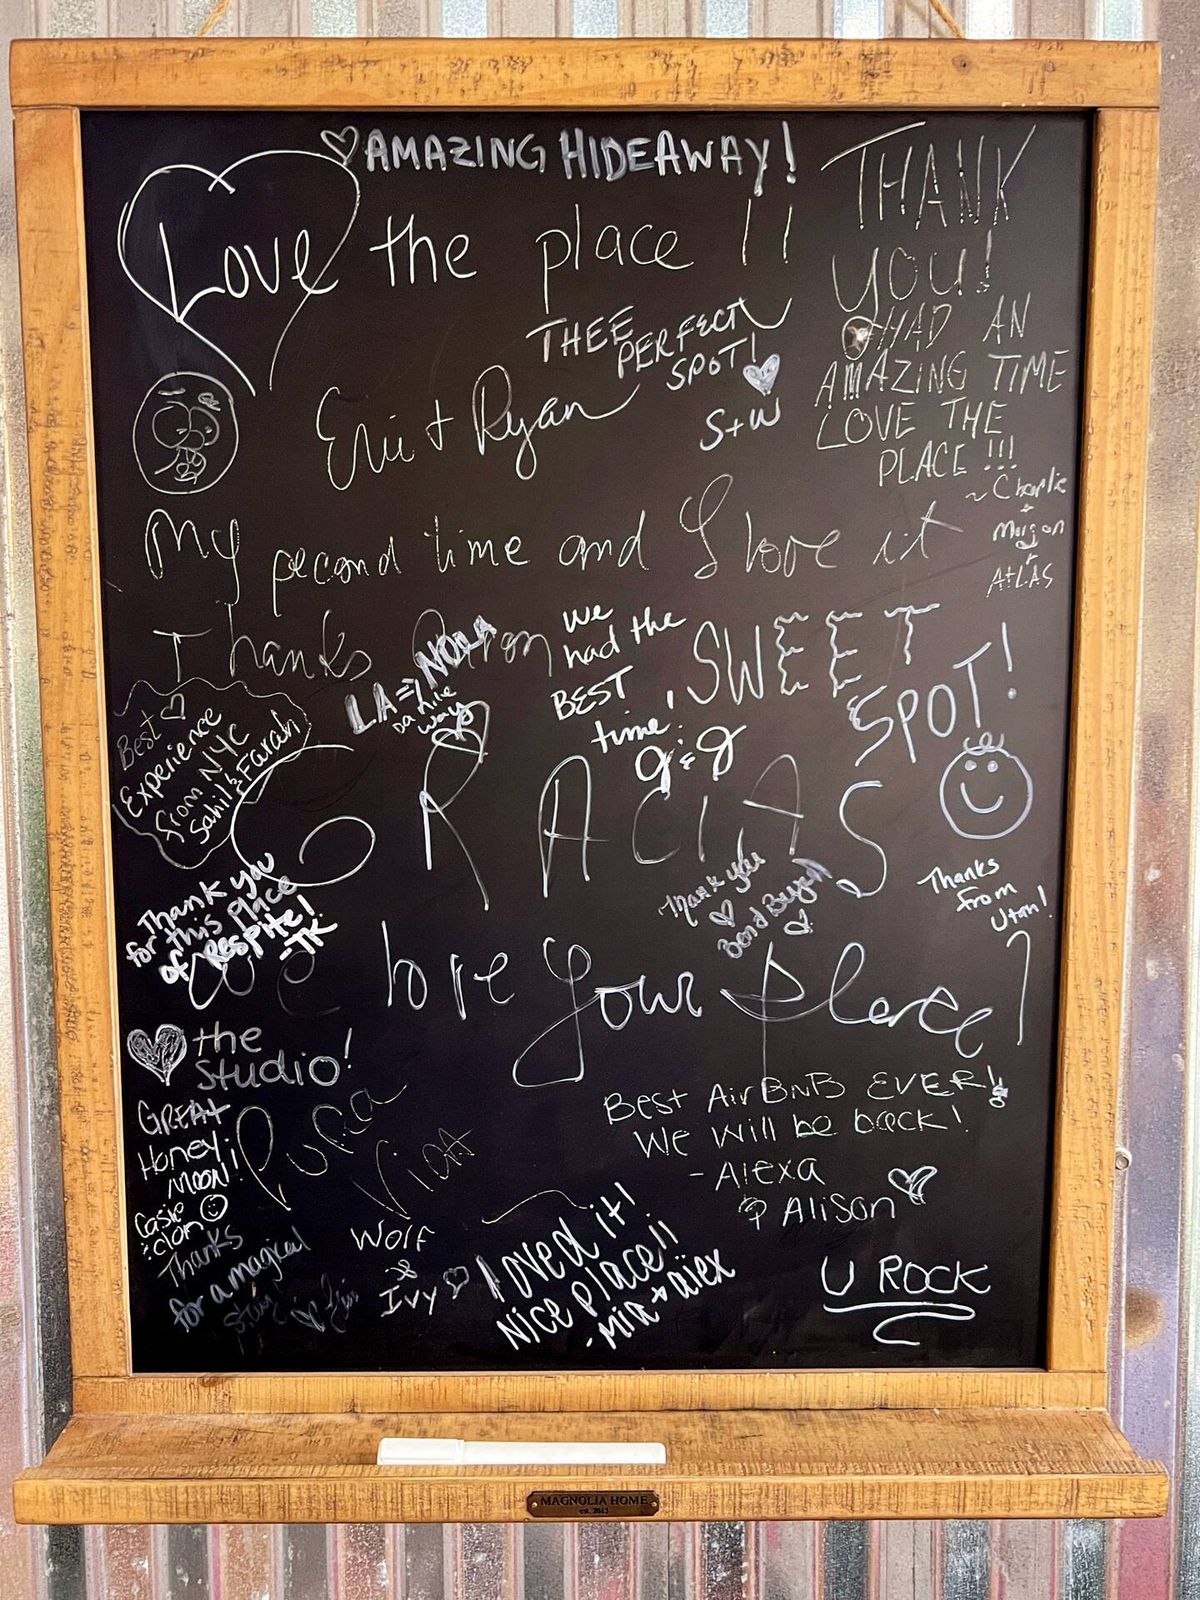 AMAZING HIDEAWAY!
Love the place !!
THANK
YOU!
HAD AN
AMAZING TIME
LOVE THE
PLACE !!!
~ Charlie
+
Morgan
+
ATLAS
THEE PERFECT
SPOT!
S+W
+ Ryan
My second time and I love it
Thanks
LA => NOLA
on the
way
we
had the
BEST
time!
J & J
SWEET
SPOT!
Best
Experience
from NYC
Sahil & Farah
GRACIAS
Thank you
for this place
of RESPITE!
-TK
Thank you
Thanks
from
Utah!
We love your place!
the
Studio!
GREAT
Honey
MOON!
Pura
Vida
Best AirBnB EVER!
We will be back!
- Alexa
& Alison
Thanks
for a magical
Wolf
&
Ivy
Loved it!
Nice place!!
- Mia + alex
U ROCK
MAGNOLIA HOME
est. 2003